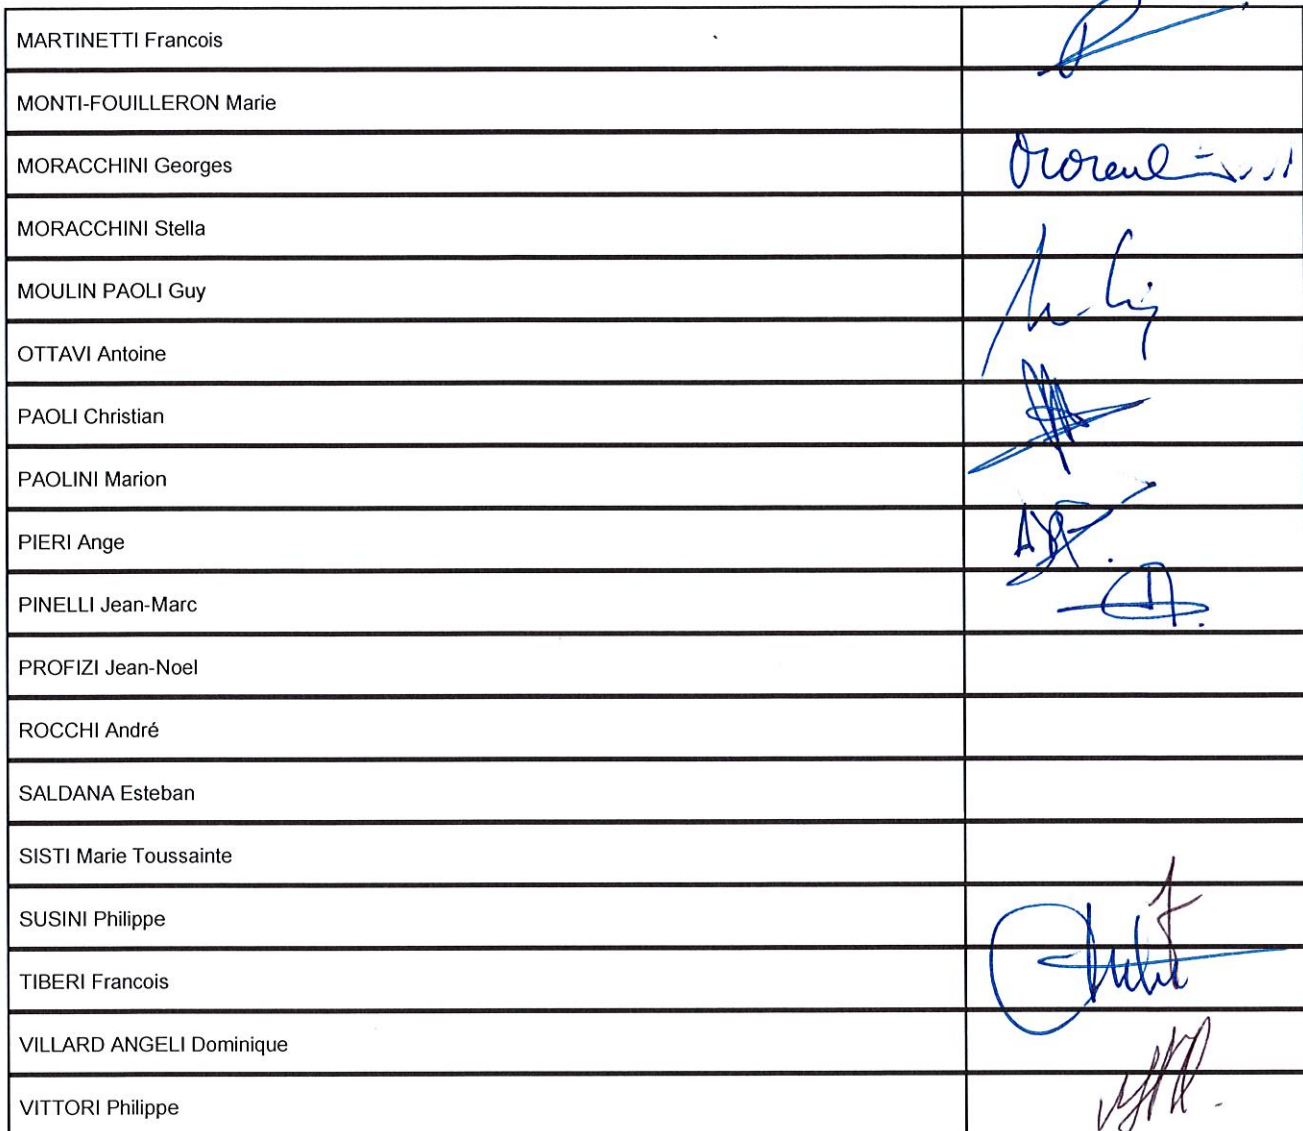 MARTINETTI Francois
MONTI-FOUILLERON Marie
MORACCHINI Georges
MORACCHINI Stella
MOULIN PAOLI Guy
OTTAVI Antoine
PAOLI Christian
PAOLINI Marion
PIERI Ange
PINELLI Jean-Marc
PROFIZI Jean-Noel
ROCCHI André
SALDANA Esteban
SISTI Marie Toussainte
SUSINI Philippe
TIBERI Francois
VILLARD ANGELI Dominique
VITTORI Philippe